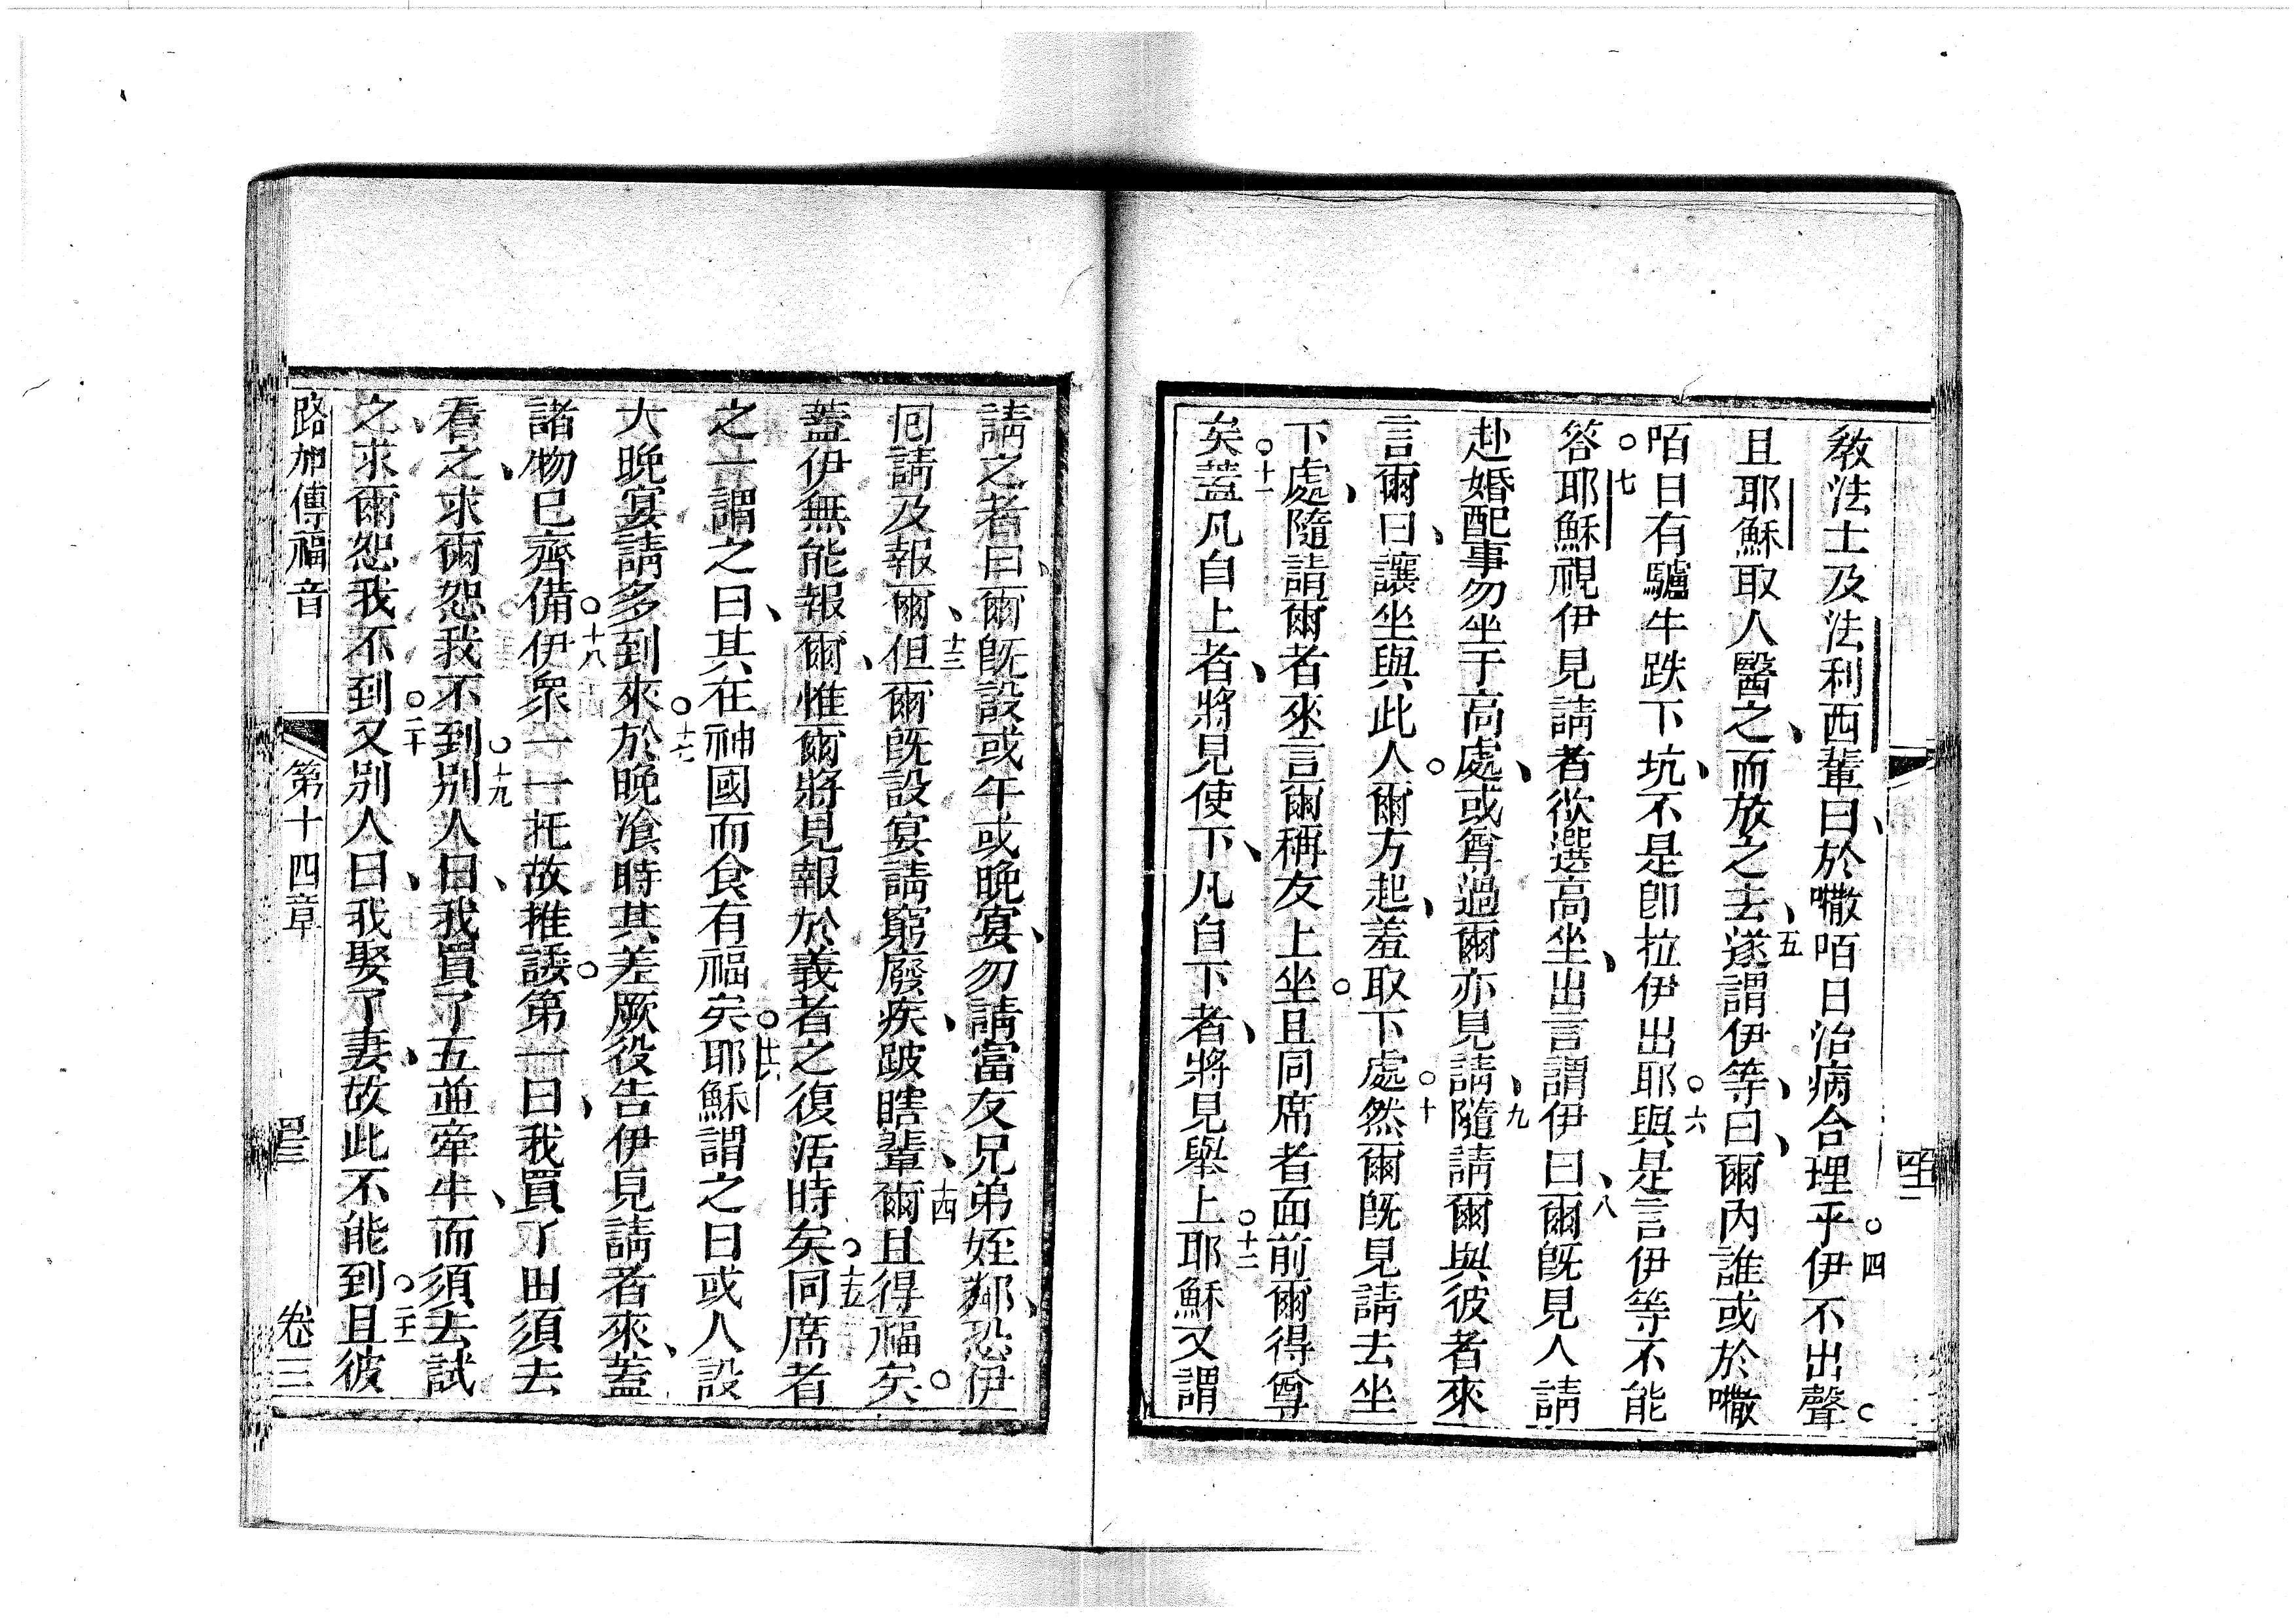 教法士及法利西輩曰、於𡃤陌日治病合理乎。四伊不出聲。
且耶穌取人醫之、而放之去、五遂謂伊等、曰、爾內誰或於𡃤
陌日有驢牛跌下坑、不是卽拉伊出耶。六與是言伊等不能
答。七耶穌視伊見請者欲選高坐、出言謂伊曰、八爾旣見人請
赴婚配事勿坐于高處、或尊過爾亦見請、九隨請爾與彼者來
言爾曰、讓坐與此人。爾方起、羞取下處。十然爾旣見請去坐
下處、隨請爾者來言爾稱友上坐。且同席者面前爾得尊
矣。十一蓋凡自上者、將見使下、凡自下者、將見舉上。十二耶穌又謂
四十二
請之者曰、爾旣設或午或晚宴、勿請富友兄弟姪鄰、恐伊
囘請及報爾、十三但爾旣設宴請窮廢疾、跛瞎輩、十四爾且得福矣。
蓋伊無能報爾、惟爾將見報於義者之復活時矣。十五同席者
之一謂之曰、其在神國而食有福矣。十六耶穌謂之曰或人設
大晚宴請多到來。十七於晚飡時其差厥役吿伊見請者來、蓋
諸物已齊備。十八伊衆一一托故推諉。第一曰、我買了田須去
看之、求爾恕我不到。十九別人曰、我買了五並牽牛、而須去試
之、求爾恕我不到。二十又別人曰、我娶了妻、故此不能到。二十一且彼
路加傳福音 第十四章 四十三 卷三